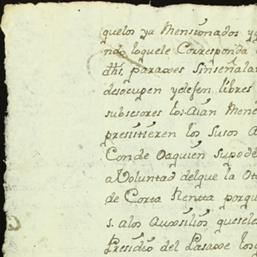 quelos ya Mensionados y q
ndo loquele Corresponda
dhs. paraxes sinseñalar
desocupen ydexen libres
subsesores los Aian Mene
presistieren los Susos A
Conde Oaquien Supode
a Voluntad delque la Ot
de Corta Renta porqu
s. alos Auxsilios quesele
Presidio del Pasaxe los